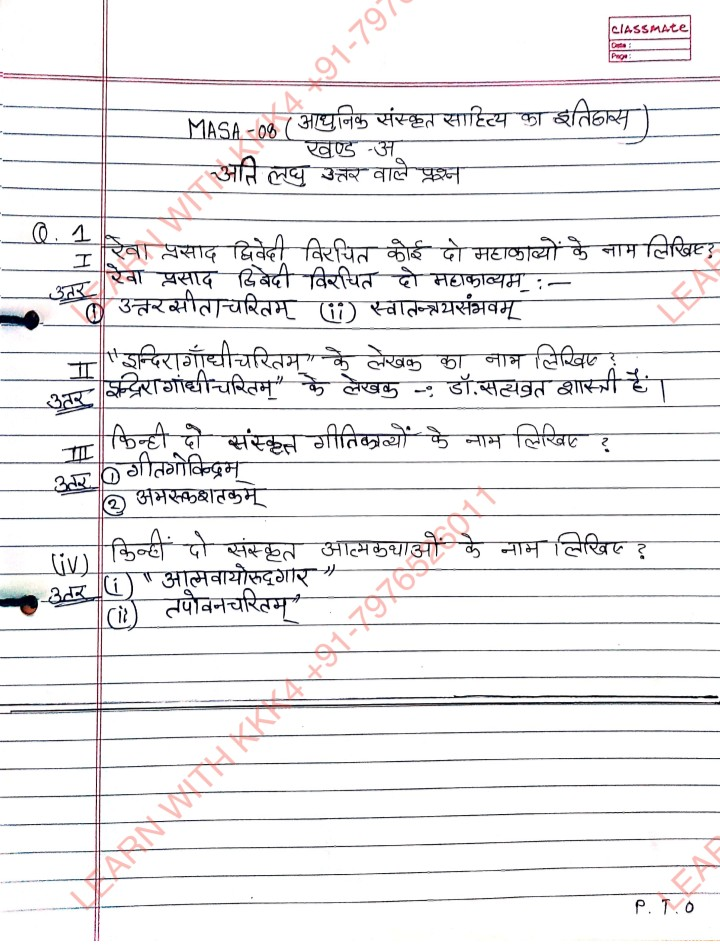 classmate
Date :
Page :
MASA-08 (आधुनिक संस्कृत साहित्य का इतिहास)
खण्ड -अ
-अति लघु उत्तर वाले प्रश्न
Q. 1
I रेवा प्रसाद द्विवेदी विरचित कोई दो महाकाव्यों के नाम लिखिए?
उतर रेवा प्रसाद द्विवेदी विरचित दो महाकाव्यम् :—
① उत्तरसीताचरितम् (ii) स्वातन्त्रयसंभवम्
II "इन्दिरागाँधीचरितम्" के लेखक का नाम लिखिए ?
उतर इन्दिरागांधीचरितम्" के लेखक -: डॉ. सत्यव्रत शास्त्री हैं |
III किन्ही दो संस्कृत गीतिकाव्यों के नाम लिखिए ?
उतर ① गीतगोविन्द्रम्
② अमरूकशतकम्
(iv) किन्हीं दो संस्कृत आत्मकथाओं के नाम लिखिए ?
उतर (i) "आत्मवायोरुद्गार"
(ii) तपोवनचरितम्"
P. T. O
LEARN WITH KKK4 +91-7976526011